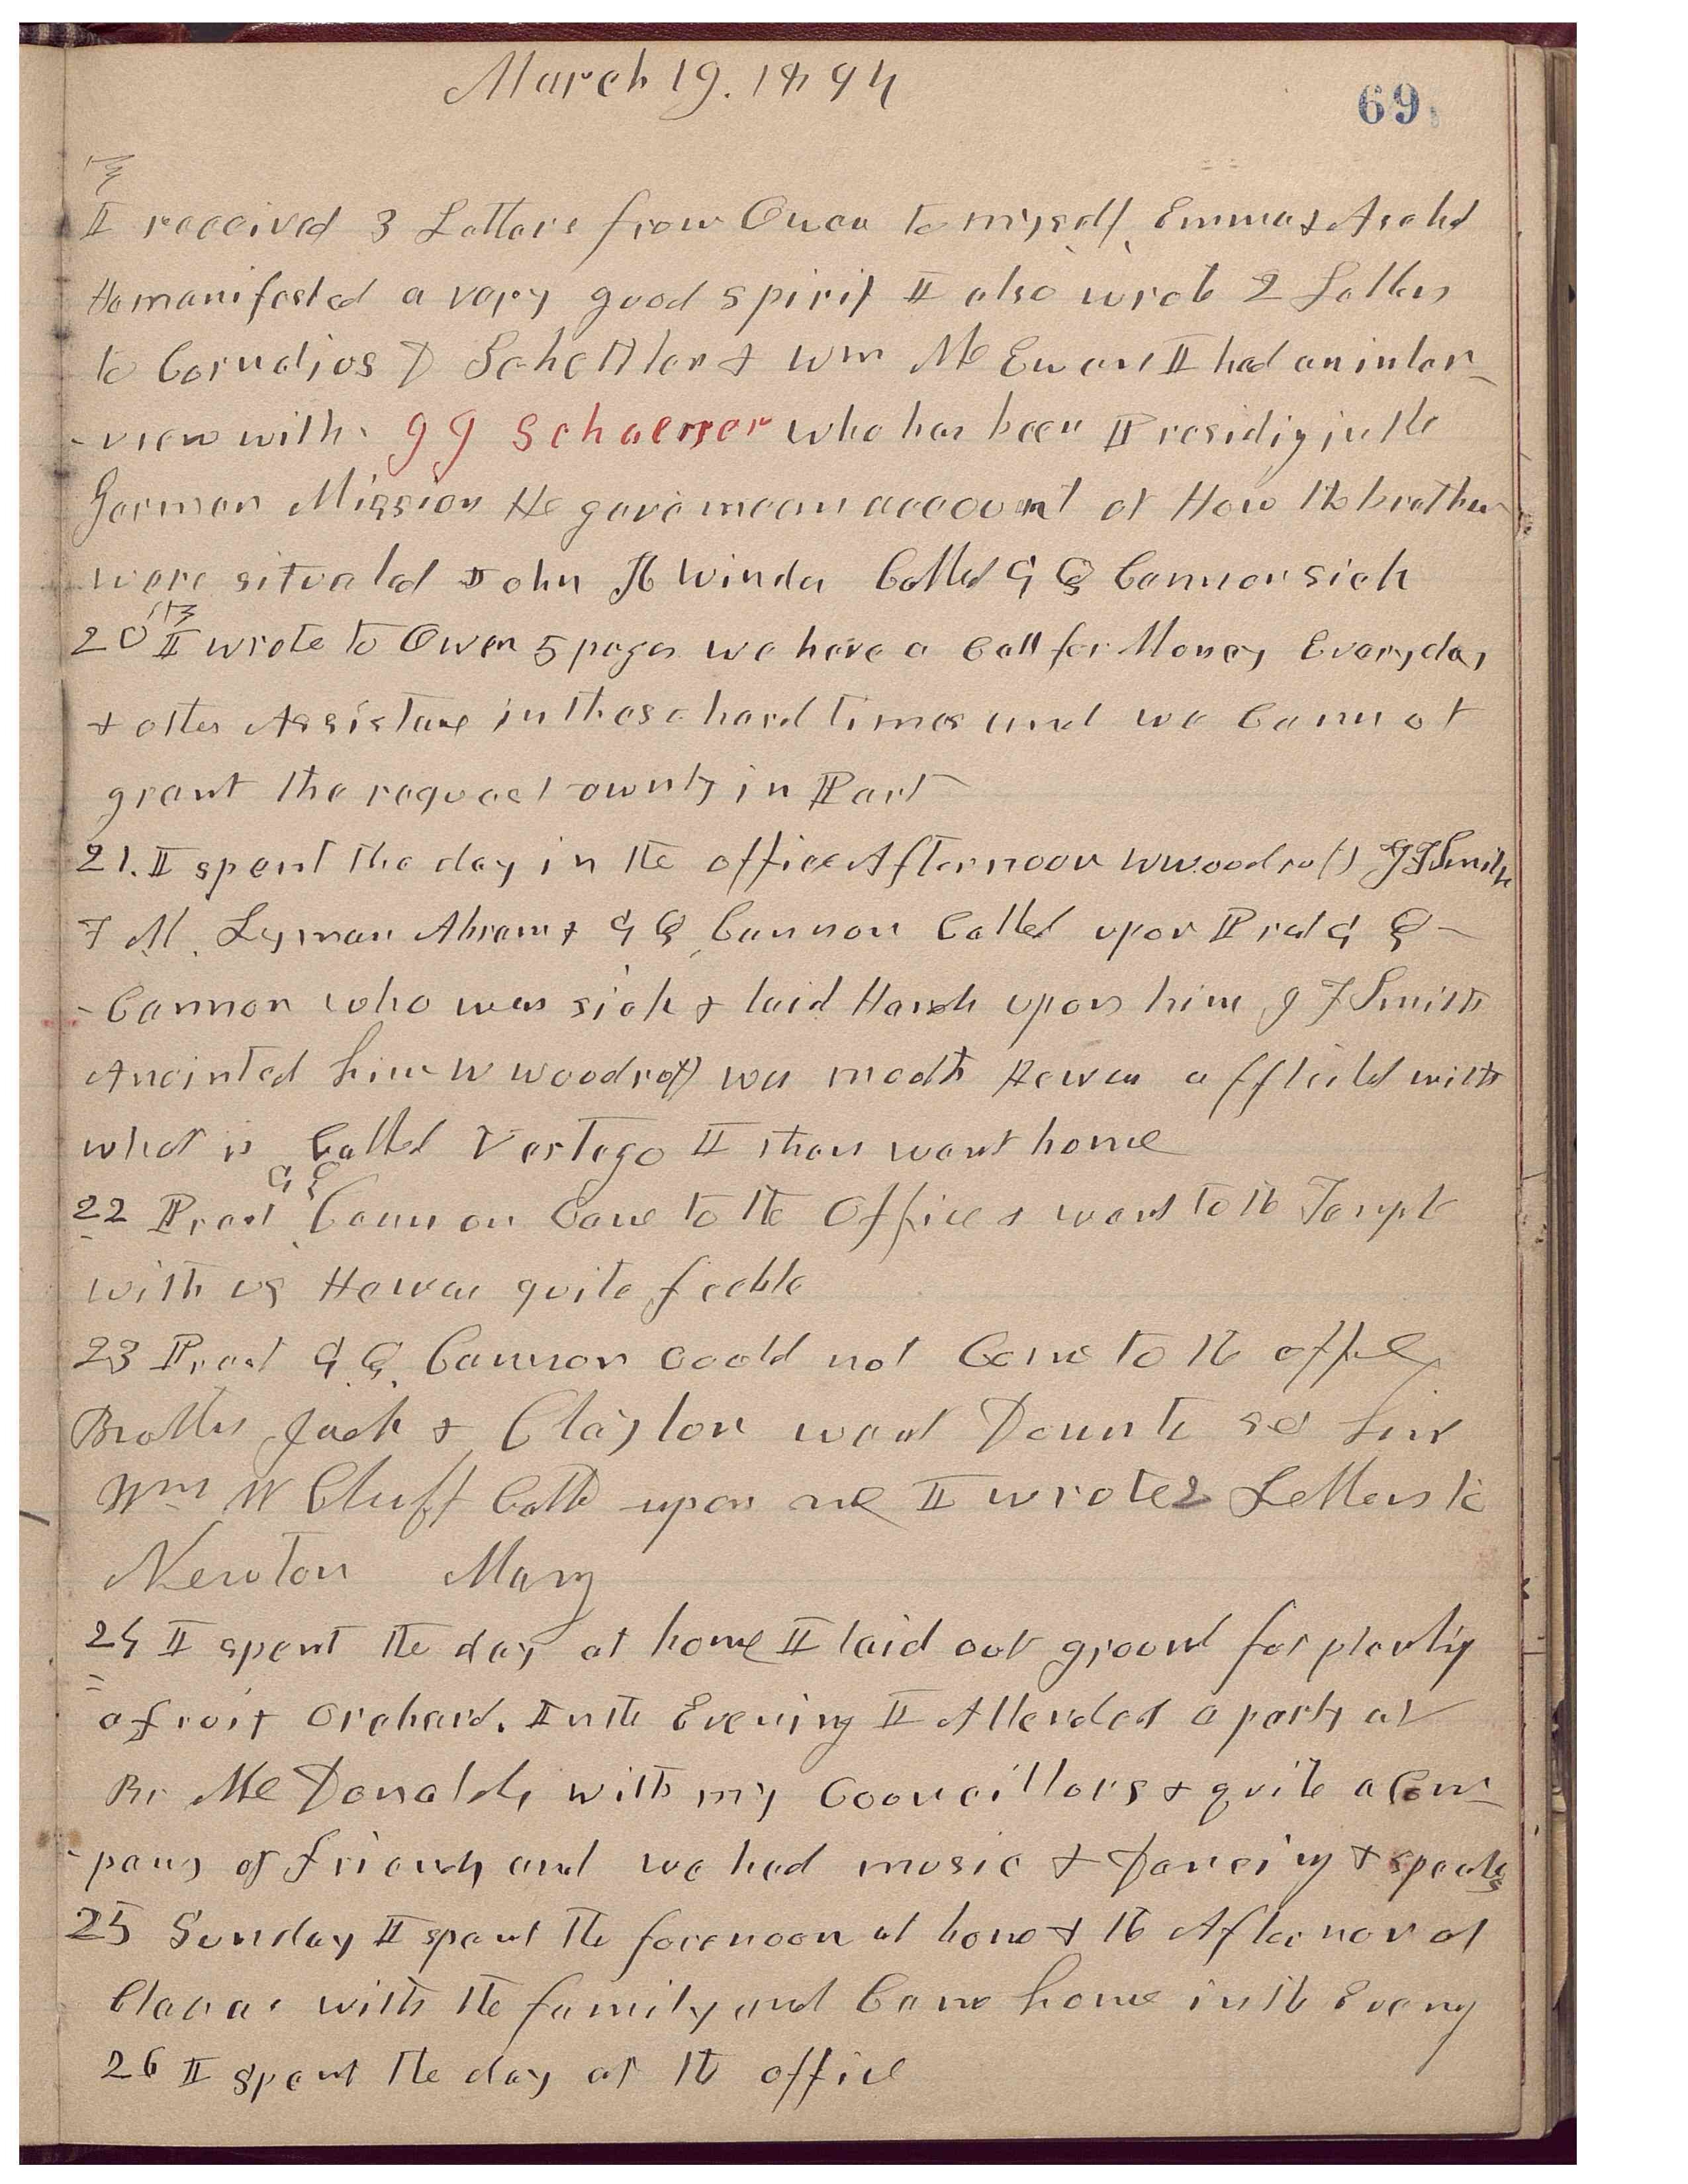 March 19. 1894
69
I received 3 Letters from Owen to myself, Emma & Asahel
He manifested a very good spirit I also wrote 2 Letters
to Cornelios D Schettler & Wm Mc Ewan I had an inter-
-view with J J Schaerrer who has been Presidig in the
German Mission He gave me an account of How the brethren
were situated John R Winder Called G Q Cannon sick
20 I wrote to Owen 5 pages we have a Call for Money Every day
& other Assistane in these hard times and we Cannot
grant the request ownly in Part
21. I spent the day in the office Afternoon W Woodruff J F Smith
F M. Lyman Abram & G Q Cannon Called upon Prest G Q
-Cannon who was sick & laid Hands upon him J F Smith
Anointed him W Woodruff was mouth He was afflicted with
what is Called Vertego I then went home
22 Prest G Q Cannon Came to the Office & went to the Temple
with us He was quite feeble
23 Prest G. Q. Cannon Could not Come to the office
Brothers Jack & Clayton went Down to see him
Wm W Cluff Calld upon me I wrote 2 Letters to
Newton Mary
24 I spent the day at home I laid out ground for plantig
a fruit Orchard. In the Evening I Attended a party at
Br McDonalds with my Councillors & quite a Com
-pany of friends and we had music & Dancing & speaks
25 Sunday I spent the forenoon at home & the Afternoon at
Claras with the family and Came home in the Evening
26 I spent the day at the office